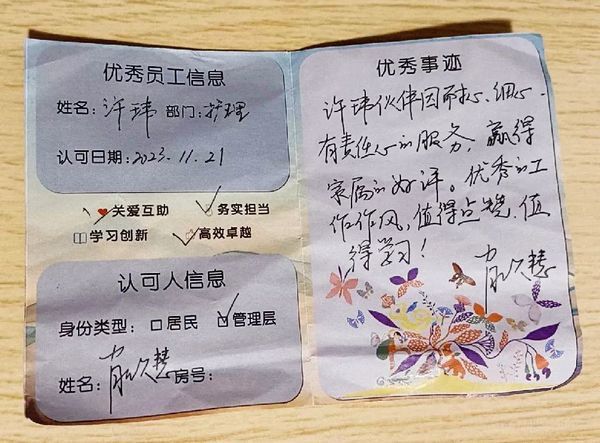 优秀员工信息
姓名：许玮 部门：护理
认可日期：2023.11.21
关爱互助 务实担当
学习创新 高效卓越
认可人信息
身份类型： 居民 管理层
姓名： 房号：
优秀事迹
许玮伙伴因耐心、细心、
有责任心的服务，赢得
家属的好评。优秀的工
作作风，值得点赞，值
得学习！